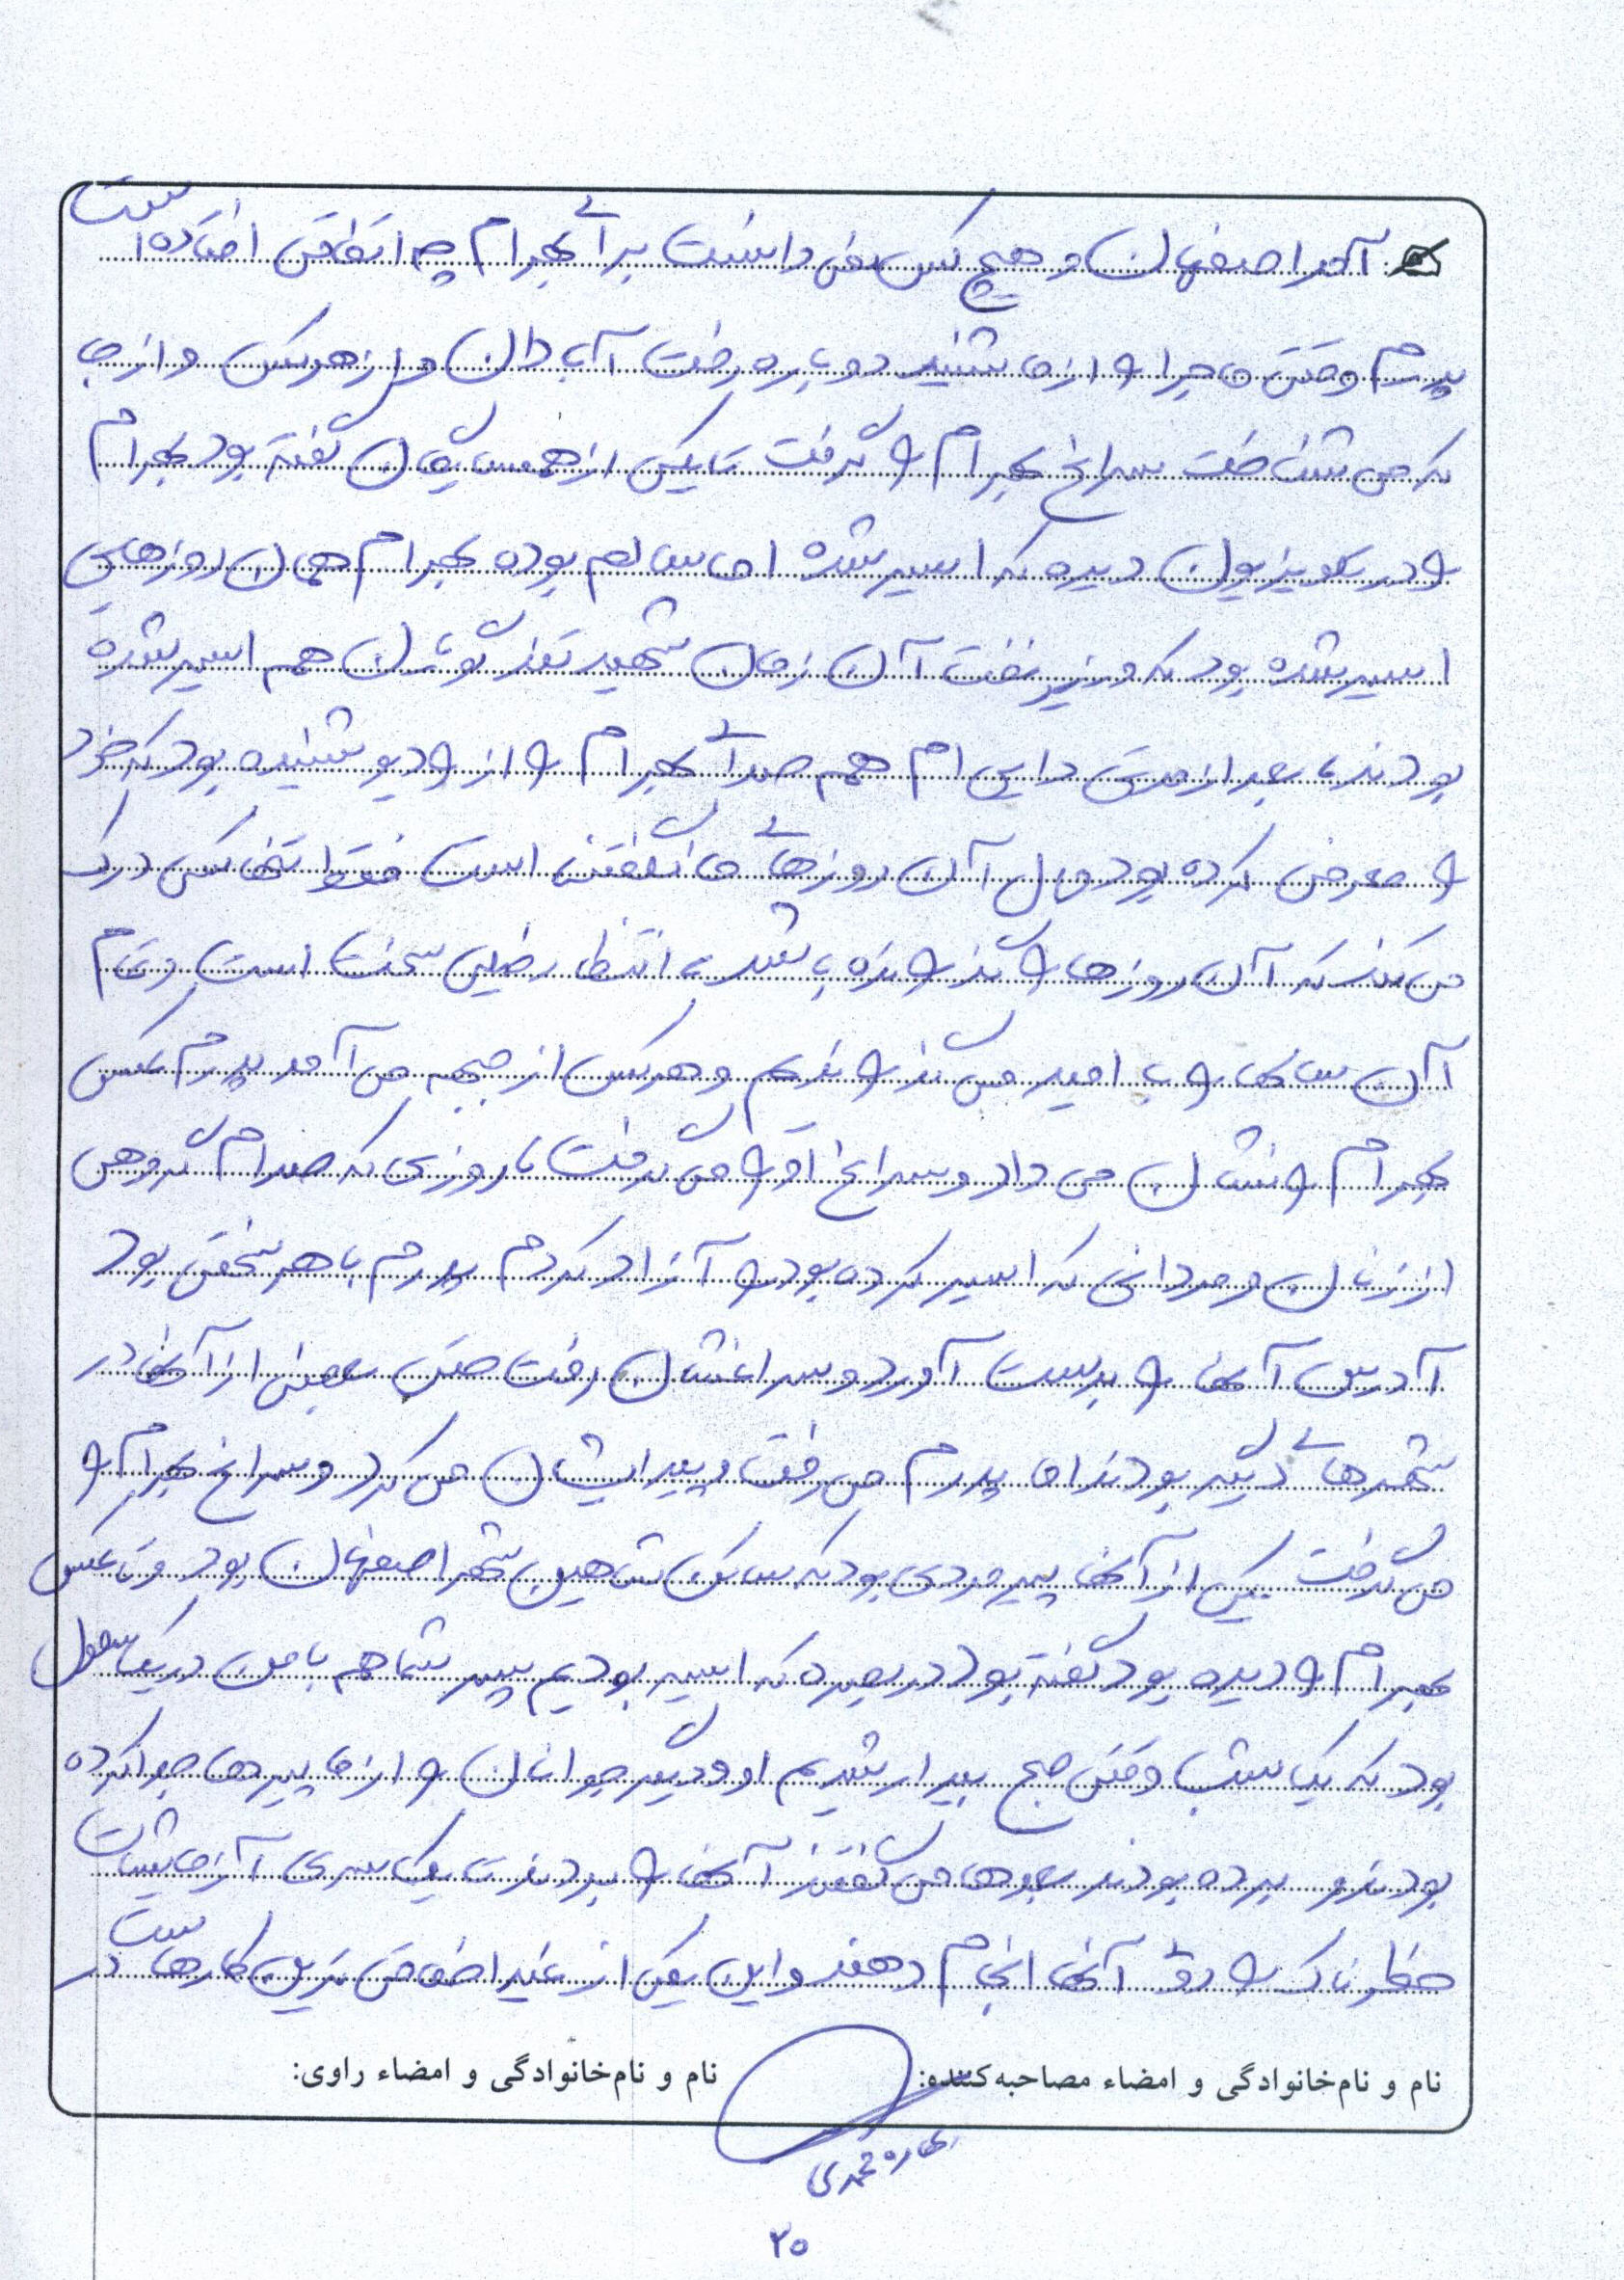 آمد اصفهان و هیچ کس نمی دانست برای بهرام چه اتفاقی افتاده است
پدرم وقتی ماجرا را از ما شنید دوباره رفت آبادان و از هرکس و از جا
که می شناخت سراغ بهرام را گرفت تا یکی از همسایگان گفته بود بهرام
را در تلویزیون دیده که اسیر شده اما سالم بوده بهرام همان روزهایی
اسیر شده بود که وزیر نفت آن زمان شهید تندگویان هم اسیر شده
بودند بعد از مدتی دایی ام هم صدای بهرام را از رادیو شنیده بود که خود
را معرفی کرده بود حال آن روزهای ما نگفتنی است فقط تنها کسی درک
می کند که آن روزها را گذرانده باشد انتظار خیلی سخت است و تمام
آن سالها را با امید می گذراندیم و هرکس از جبهه می آمد پدرم عکس
بهرام را نشان می داد و سراغ او را می گرفت تا روزی که صدام گروهی
از زنان و مردانی که اسیر کرده بود را آزاد کردم پدرم با هر سختی بود
آدرس آنها را بدست آورد و سراغشان رفت حتی بعضی از آنها در
شهرهای دیگر بودند اما پدرم می رفت و پیدایشان می کرد و سراغ بهرام را
می گرفت یکی از آنها پیرمردی بود که ساکن شاهین شهر اصفهان بود وقتا عکس
بهرام را دیده بود گفته بود در بصره که اسیر بودیم پسر شما هم با من در یک سلول
بود که یک شب وقتی صبح بیدار شدیم او و دیگر جوانان را از ما پیرها جدا کرده
بودند و برده بودند بعدها می گفتند آنها را بردند تا یک سری آزمایشات
خطرناک را روی آنها انجام دهند و این یکی از غیر اخلاقی ترین کارهاست در
نام و نام‌خانوادگی و امضاء مصاحبه‌کننده: نام و نام‌خانوادگی و امضاء راوی:
بهاره محمدی
۲۵